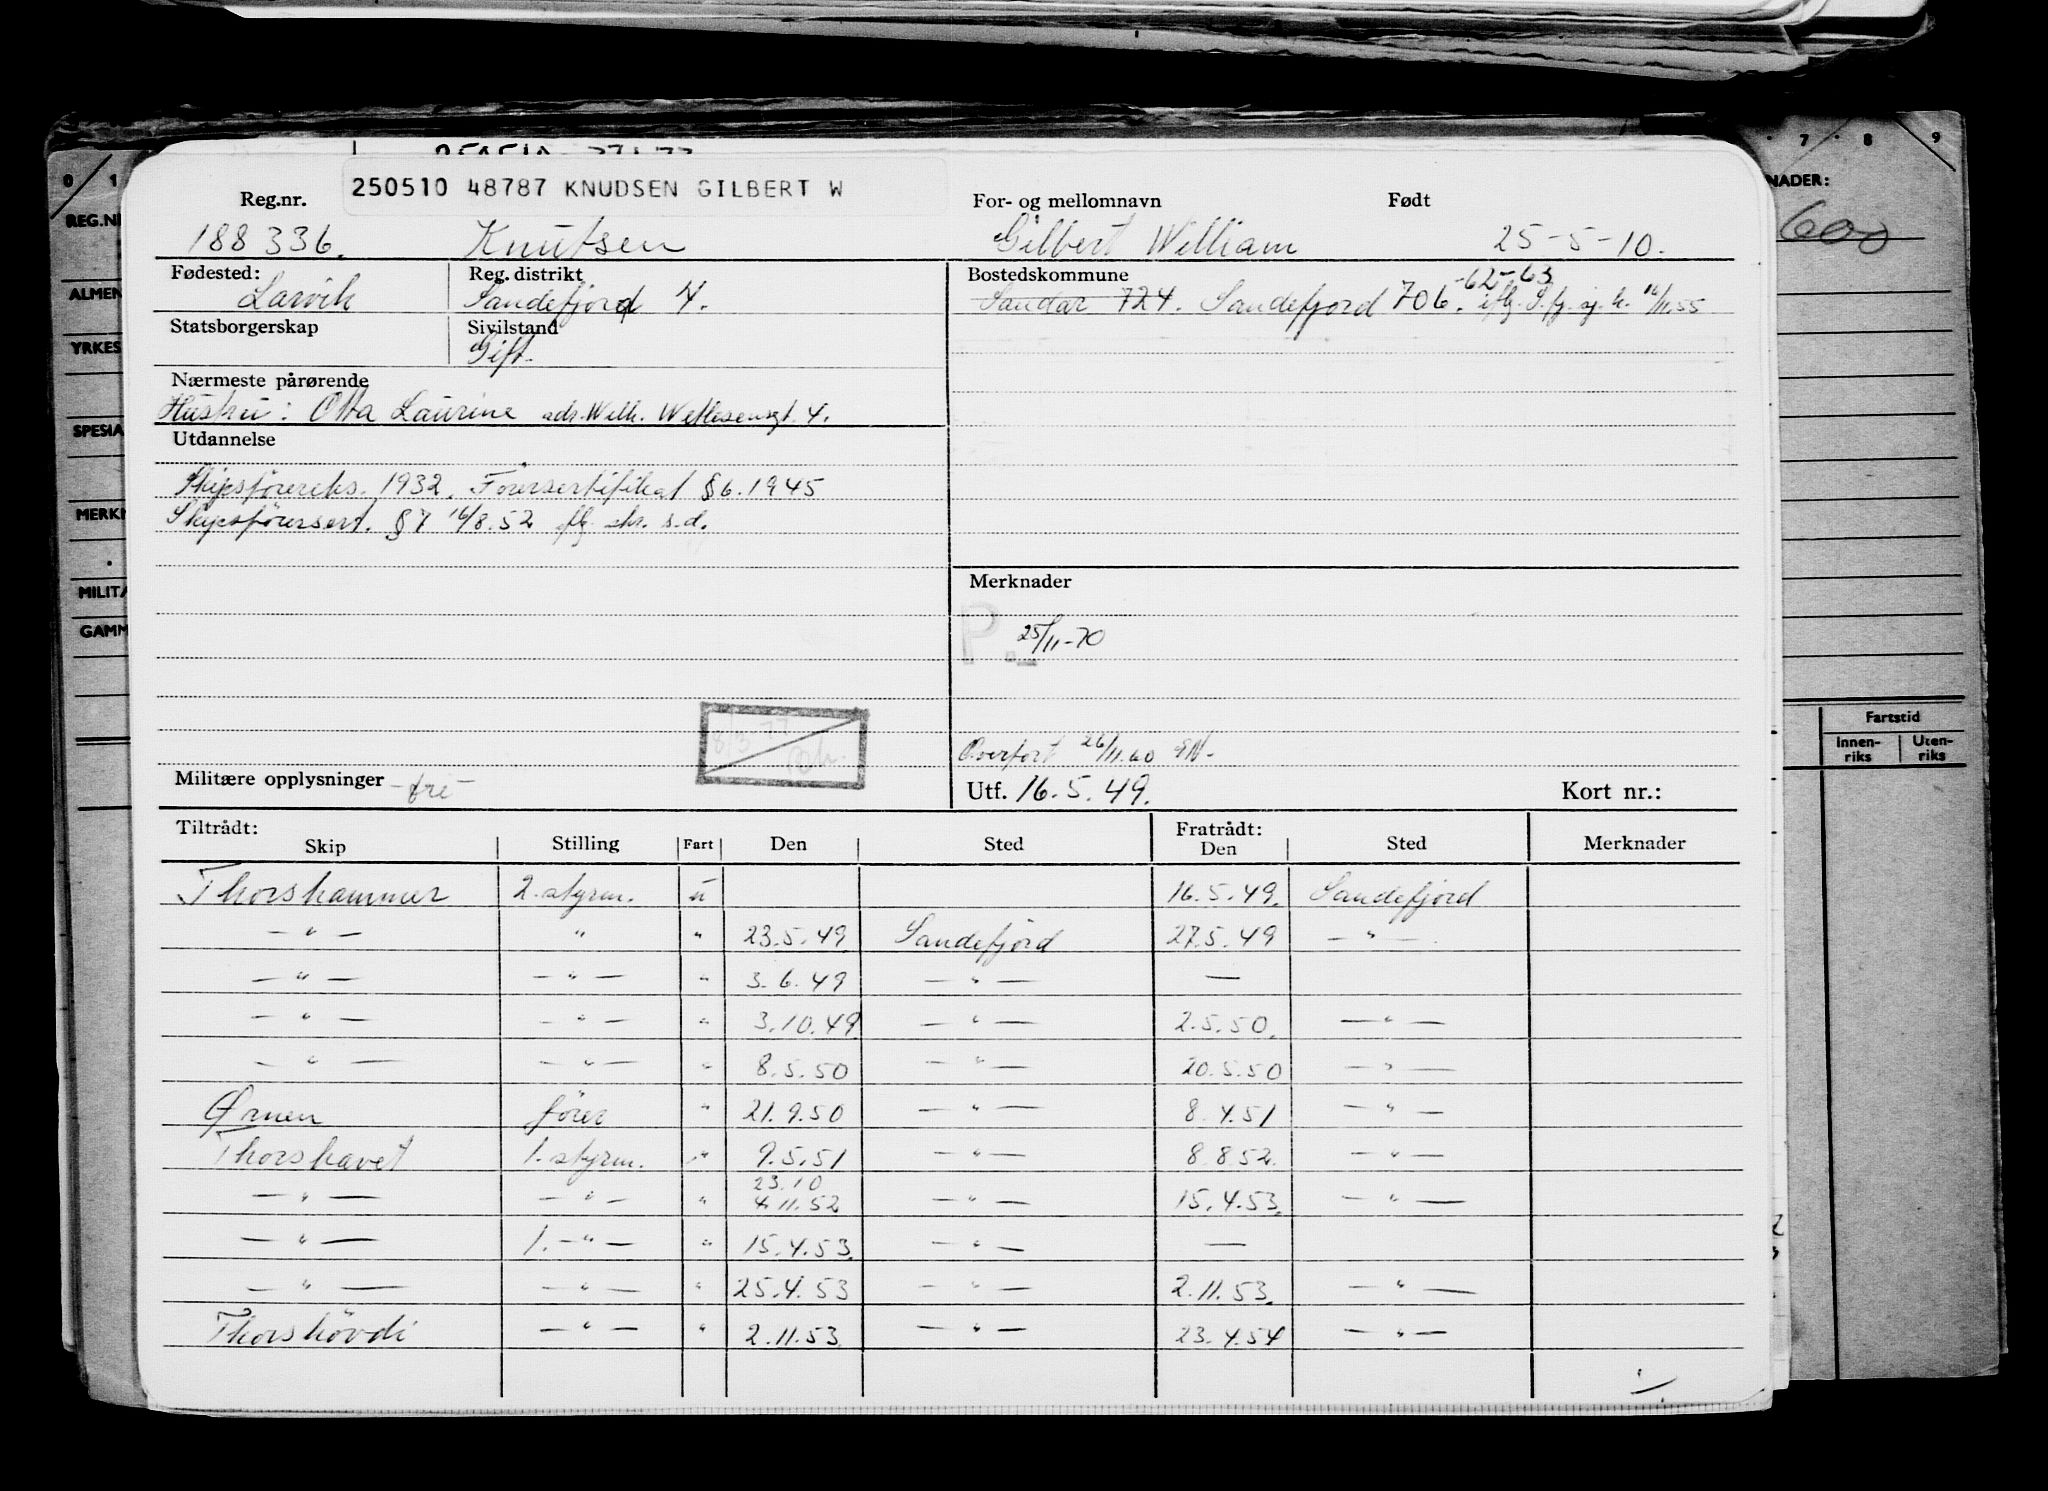 0 1 7 8 9
250510 48787 KNUDSEN GILBERT W
Reg.nr. For- og mellomnavn Født
188336. Knutsen Gilbert William 25-5-10.
600
Fødested: Reg. distrikt Bostedskommune
-62-63
Larvik Sandefjord 4. Sandar 724. Sandefjord 706. iflg. S.fj. sj.k. 16/11.55
Statsborgerskap Sivilstand
Gift.
Nærmeste pårørende
Hustru: Otta Laurine adr. Wilh. Wetlesensgt. 4.
Utdannelse
Skipsførereks. 1932. Førersertifikat § 6. 1945
Skipsførersert. § 7 16/8.52 iflg. skr. s.d.
Merknader
P. 25/11-70
8/3 77
Overført 26/11.60
Militære opplysninger -fri- Utf. 16.5.49. Kort nr.:
Tiltrådt: Fratrådt:
Skip Stilling Fart Den Sted Den Sted Merknader
Thorshammer 2. styrm. u 16.5.49. Sandefjord
— " — " " 23.5.49 Sandefjord 27.5.49 — " —
— " — — " — " 3.6.49 — " — —
— " — — " — " 3.10.49 — " — 2.5.50. — " —
— " — — " — " 8.5.50 — " — 20.5.50 — " —
Ørnen fører " 21.9.50 — " — 8.4.51 — " —
Thorshavet 1. styrm. " 9.5.51 — " — 8.8.52. — " —
23.10
— " — — " — " 4.11.52 — " — 15.4.53. — " —
— " — 1. — " — " 15.4.53. — " — —
— " — — " — " 25.4.53 — " — 2.11.53. — " —
Thorshövdi — " — " 2.11.53 — " — 23.4.54 — " —
Fartstid
Innen-riks Uten-riks